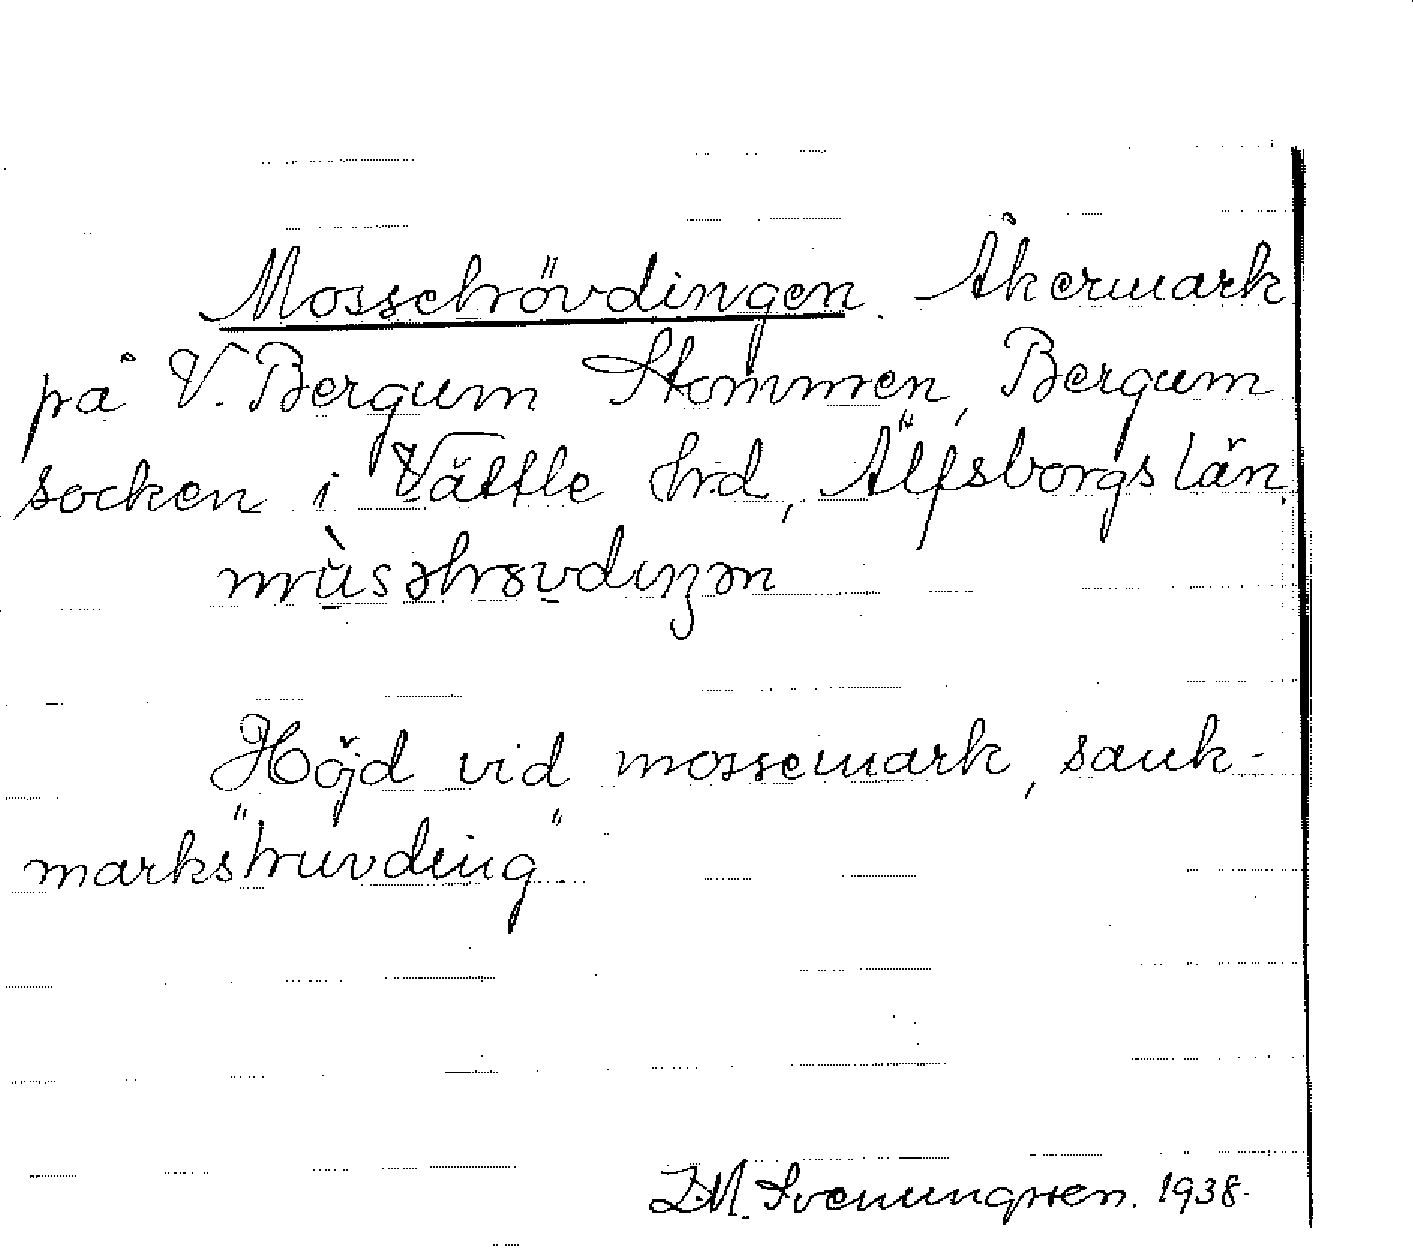 Mossehövdingen. Åkermark
på V. Bergum Stommen, Bergum
socken i Vättle hrd, Älfsborgs län.
Höjd vid mossemark, sank-
marks"huvding"
Svenungsson. 1938.